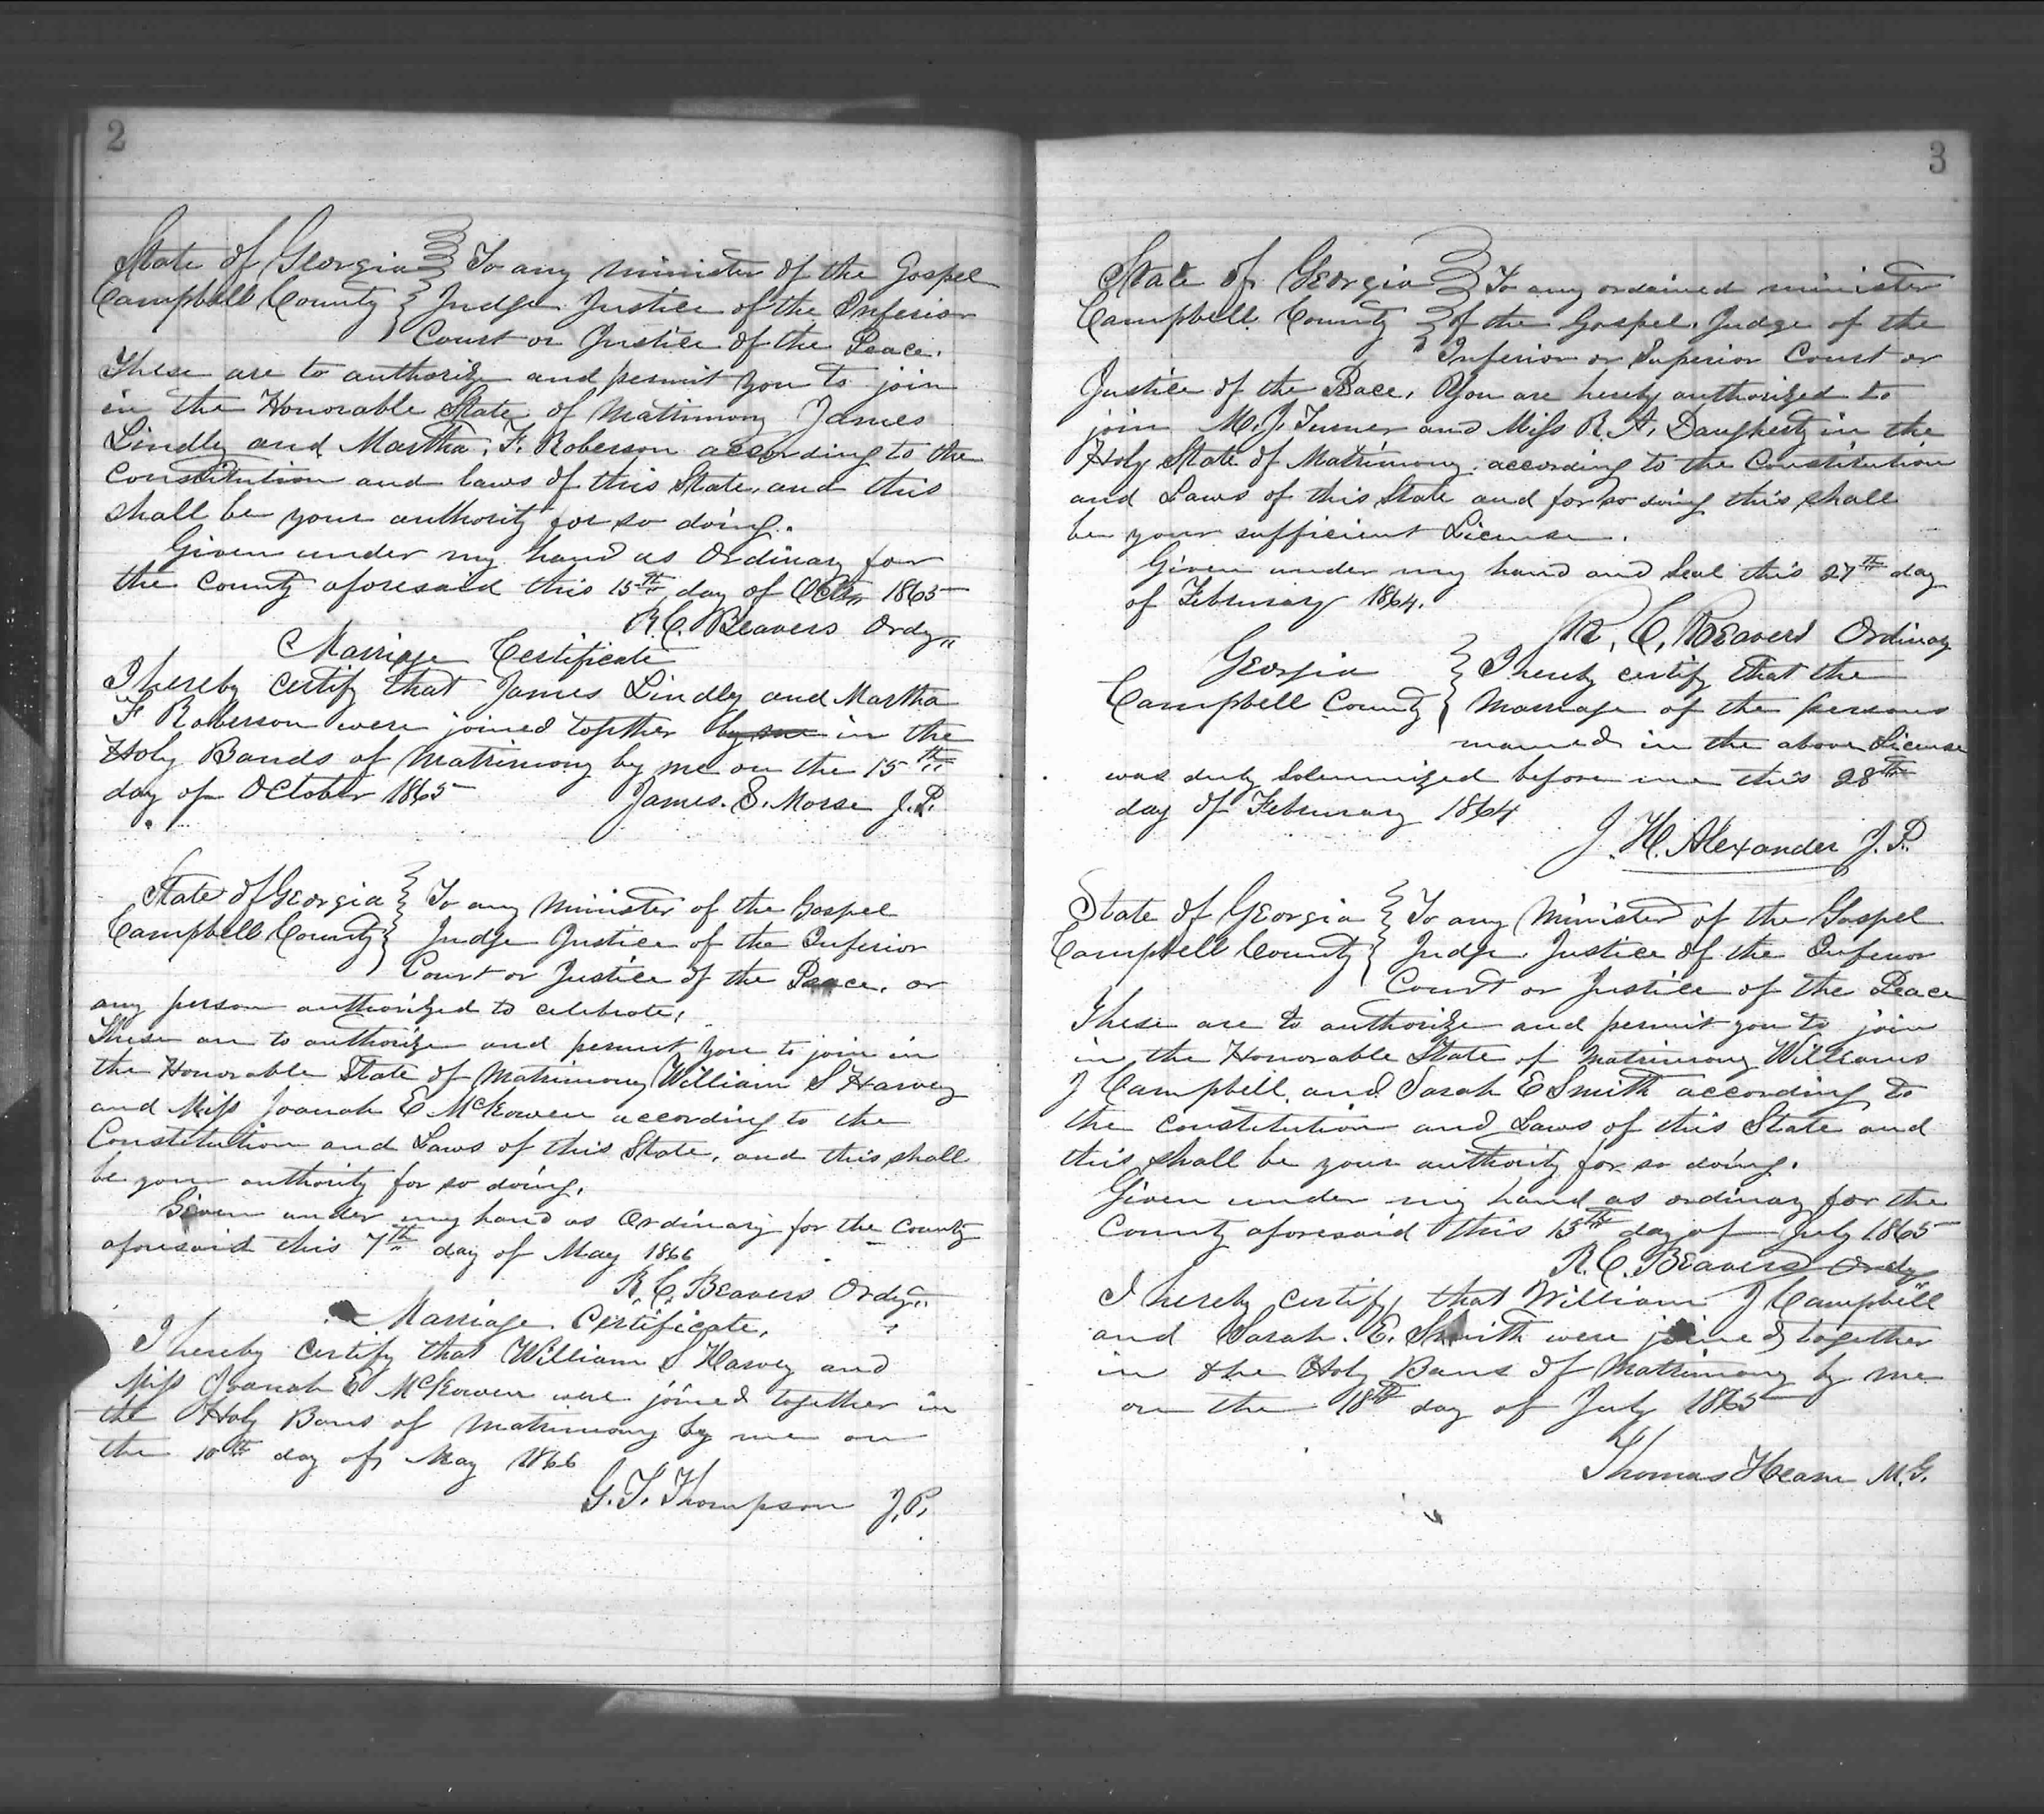 2
State of Georgia } To any minister of the Gospel
Campbell County } Judge Justice of the Inferior
Court or Justice of the Peace.
These are to authorize and permit you to join
in the Honorable State of Matrimony James
Lindly and Martha, F. Roberson according to the
Constitution and laws of this State, and this
shall be your authority for so doing.
Given under my hand as Ordinary for
the County aforesaid this 15th day of Octr 1865
R.C. Beavers Ordy
Marriage Certificate
I hereby certify that James Lindly and Martha
F Roberson were joined together by me in the
Holy Bands of Matrimony by me on the 15th
day of October 1865 James. S. Morse J.P.
State of Georgia } To any Minister of the Gospel
Campbell County } Judge Justice of the Inferior
Court or Justice of the Peace. or
any person authorized to celebrate.
These are to authorize and permit you to join in
the Honorable State of Matrimony William S Harvey
and Miss Joanah E McKowen according to the
Constitution and Laws of this State, and this shall
be your authority for so doing.
Given under my hand as Ordinary for the County
aforesaid this 7th day of May 1866
R.C. Beavers Ordy
Marriage Certificate.
I hereby certify that William S Harvey and
Miss Joanah E McKowen were joined together in
the Holy Bans of Matrimony by me on
the 10th day of May 1866
G.T. Thompson J.P.
3
State of Georgia } To any ordained minister
Campbell County } of the Gospel, Judge of the
Inferior or Superior Court or
Justice of the Peace, You are hereby authorized to
join M.J. Turner and Miss R.A. Daugherty in the
Holy State of Matrimony according to the Constitution
and Laws of this State and for so doing this shall
be your sufficient License.
Given under my hand and Seal this 27th day
of February 1864.
R.C. Beavers Ordinary
Georgia } I hereby certify that the
Campbell County } Marriage of the persons
named in the above License
was duly Solemnized before me this 28th
day of February 1864
J.H. Alexander J.P.
State of Georgia } To any Minister of the Gospel
Campbell County } Judge Justice of the Inferior
Court or Justice of the Peace
These are to authorize and permit you to join
in the Honorable State of Matrimony Williams
J Campbell. and Sarah E Smith according to
the Constitution and Laws of this State and
this shall be your authority for so doing.
Given under my hand as ordinary for the
County aforesaid this 15th day of July 1865
R.C. Beavers Ordy
I hereby certify that William J Campbell
and Sarah. E. Smith were joined together
in the Holy Bans of Matrimony by me
on the 18th day of July 1865
Thomas M.G.